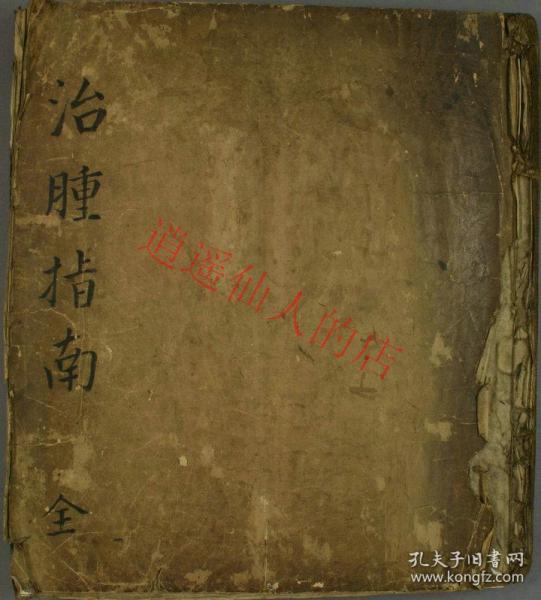 治腫指南
全
逍遥仙人的店
孔夫子旧書网
www.kongfz.com